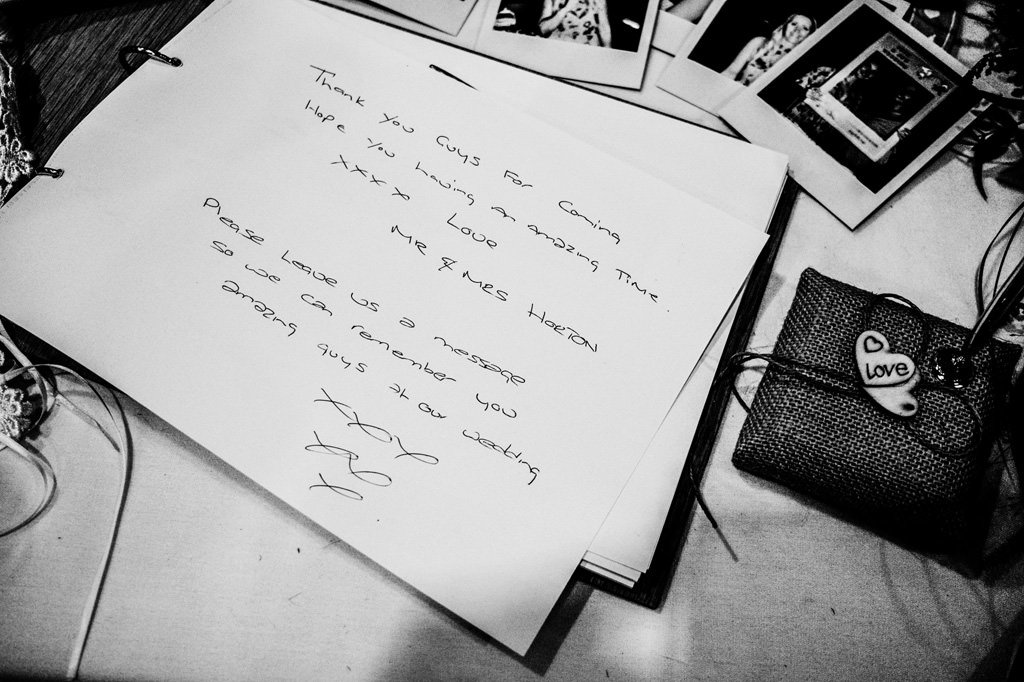 Thank you Guys For Coming
Hope you having an amazing Time.
xxxx Love
MR & MRS HORTON
Please Leave us a message
so we can remember you
amazing guys at our wedding
xxx
xx
x
Love